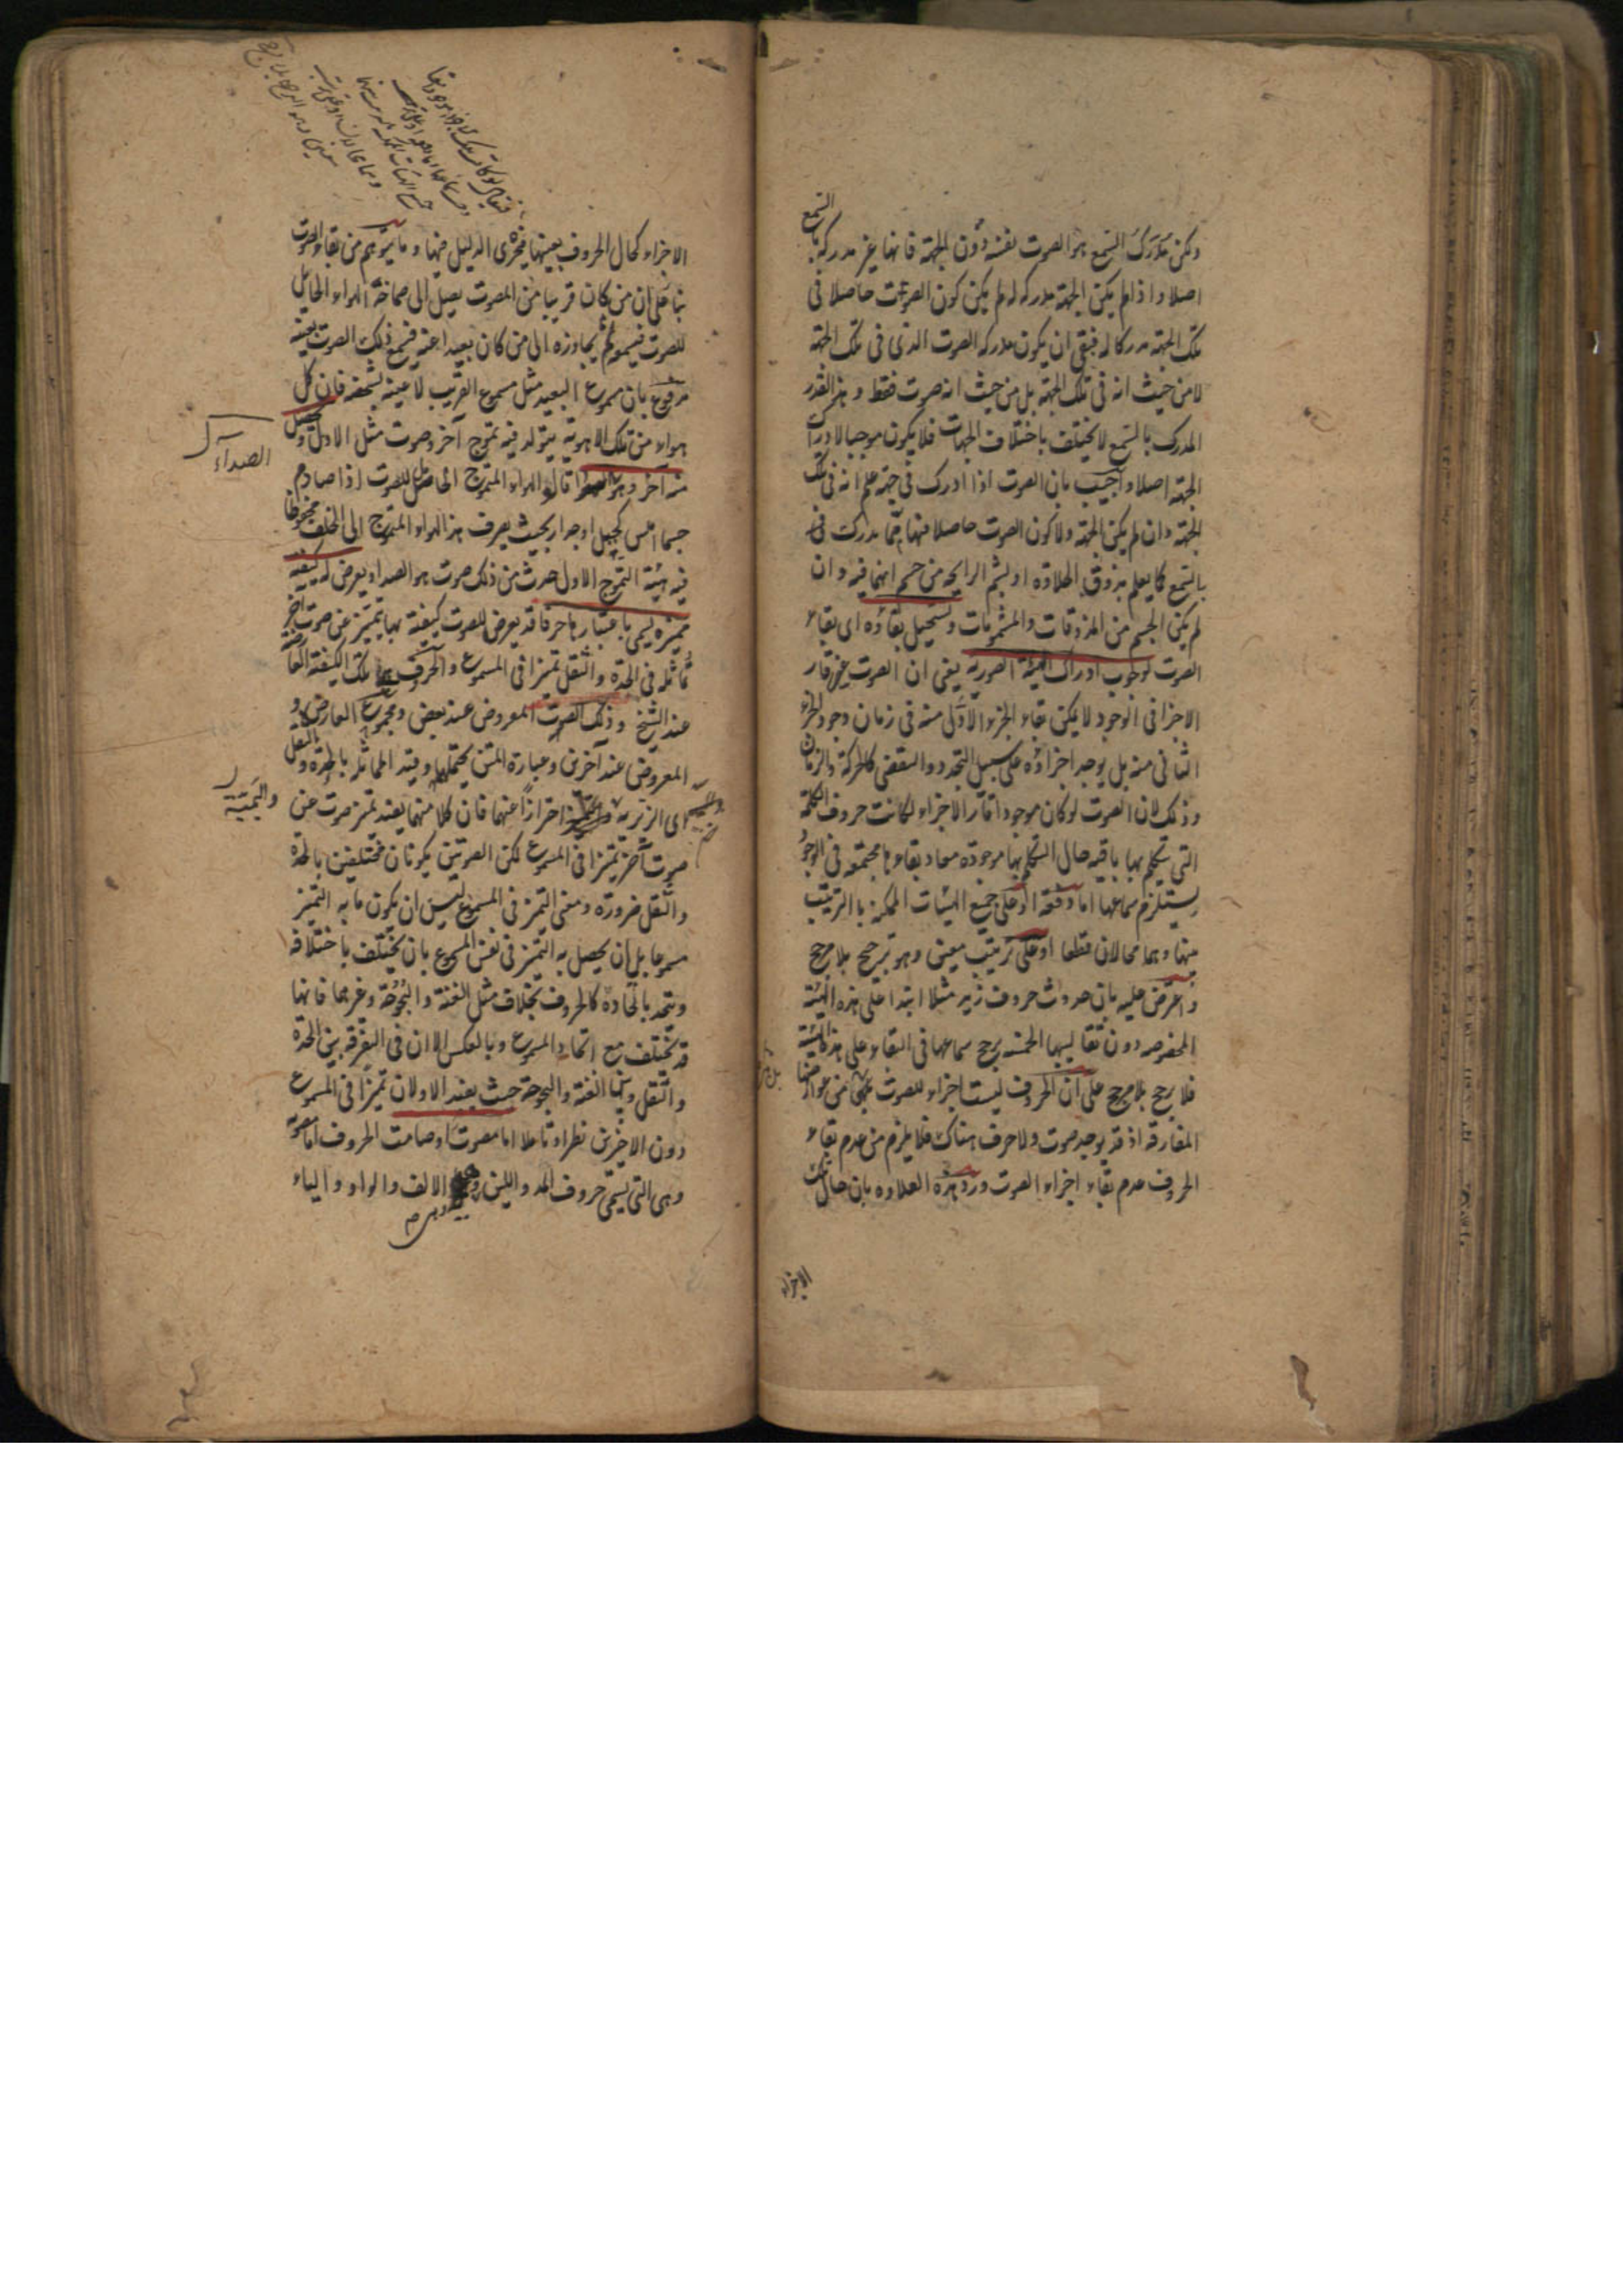 ولكن مدرك السمع هو الصوت نفسه دون الجهة فانها غير مدركة بالسمع
اصلا واذا لم يكن الجهة مدركة له لم يكن كون الصوت حاصلا فى
تلك الجهة مدركا له فبقى ان يكون مدركه الصوت الذى فى تلك الجهة
لا من حيث انه فى تلك الجهة بل من حيث انه صوت فقط وهذا القدر
المدرك بالسمع لا يختلف باختلاف الجهات فلا يكون موجبا لادراك
الجهة اصلا واجيب بان الصوت اذا ادرك فى جهة علم انه فى تلك
الجهة وان لم يكن الجهة ولا كون الصوت حاصلا فيها مما يدرك
بالسمع كما يعلم بذوق الحلاوة او بشم الرايحة من جسم انهما فيه وان
لم يكن الجسم من المذوقات والمشمومات ويستحيل بقاؤه اى بقاء
الصوت لوجوب ادراك الهيئة الصورية يعنى ان الصوت غير قار
الاجزا فى الوجود لا يمكن بقاء الجزء الاول منه فى زمان وجود الجزء
الثانى منه بل يوجد اجزاؤه على سبيل التجدد والتقضى كالحركة والزمان
وذلك لان الصوت لو كان موجودا قار الاجزاء لكانت حروف الكلمة
التى تكلم بها باقية حال التكلم بها موجودة معا وبقاؤها مجتمعة فى الوجود
يستلزم سماعها اما دفعة او على جميع الهيئات الممكنة بالترتيب
منها وهما محالان قطعا او على ترتيب معين وهو ترجيح بلا مرجح
واعترض عليه بان حدوث حروف زيد مثلا ابتدا على هذه الهيئة
المخصوصة دون تقاليبها الخمسة يرجح سماعها فى البقاء على هذه الهيئة
فلا يرجح بلا مرجح على ان الحروف ليست اجزاء للصوت بل هى من عوارضها
المفارقة اذ قد يوجد صوت ولا حرف هناك فلا يلزم من عدم بقاء
الحروف عدم بقاء اجزاء الصوت ورد هذه العلاوة بان حال تلك
الاجزاء
الاجزاء كحال الحروف بعينها فيجرى الدليل فيها وما يتوهم من بقاء الصوت
بناء على ان من كان قريبا من المصوت يصل الى صماخه الهواء الحامل
للصوت فيسمعه ثم يجاوزه الى من كان بعيدا عنه فيسمع ذلك الصوت بعينه
مدفوع بان مسموع البعيد مثل مسموع القريب لا عينه بشخصه فان كل
هواء من تلك الاهوية يتولد فيه تموج آخر وصوت مثل الاول ويحصل
منه آخر وهو الصدا قالوا الهواء المتموج الحامل للصوت اذا صادم
الصداء
جسما املس كجبل او جدار بحيث يصرف هذا الهواء المتموج الى الخلف محفوظا
فيه هيئة التموج الاول حدث من ذلك صوت هو الصدا ويعرض له كيفية
مميزة يسمى باعتبارها حرفا قد يعرض للصوت كيفية بها يتميز عن صوت آخر
مماثله فى الحدة والثقل تميزا فى المسموع والحرف تلك الكيفية العارضة
عند الشيخ وذلك الصوت المعروض عند بعض ومجموع العارض و
المعروض عند آخرين وعبارة المتن يحتملها وقيد المماثلة بالحدة والثقل
اى الزيرية احترازا عنهما فان كلا منهما يفيد تميز صوت عن
والبمية
صوت آخر تميزا فى المسموع لكن الصوتين يكونان مختلفين بالحدة
والثقل ضرورة ومعنى التميز فى المسموع ليس ان يكون ما به التميز
مسموعا بل ان يحصل به التميز فى نفس المسموع بان يختلف باختلافه
ويتحد باتحاده كالحروف بخلاف مثل الغنة والبحوحة وغيرهما فانها
قد يختلف مع اتحاد المسموع وبالعكس الا ان فى التفرقة بين الحدة
والثقل وبين الغنة والبحوحة حيث يفيد الاولان تميزا فى المسموع
دون الاخرين نظرا وتاملا اما مصوت او صامت الحروف اما مصوتة
وهى التى يسمى حروف المد واللين وهى الالف والواو والياء